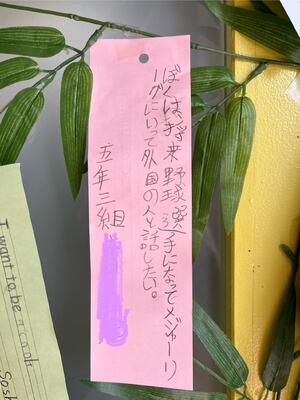 ぼくは、将来野球選手になってメジャーリ
ーグにいって外国の人と話したい。
五年三組
I want to be a cook